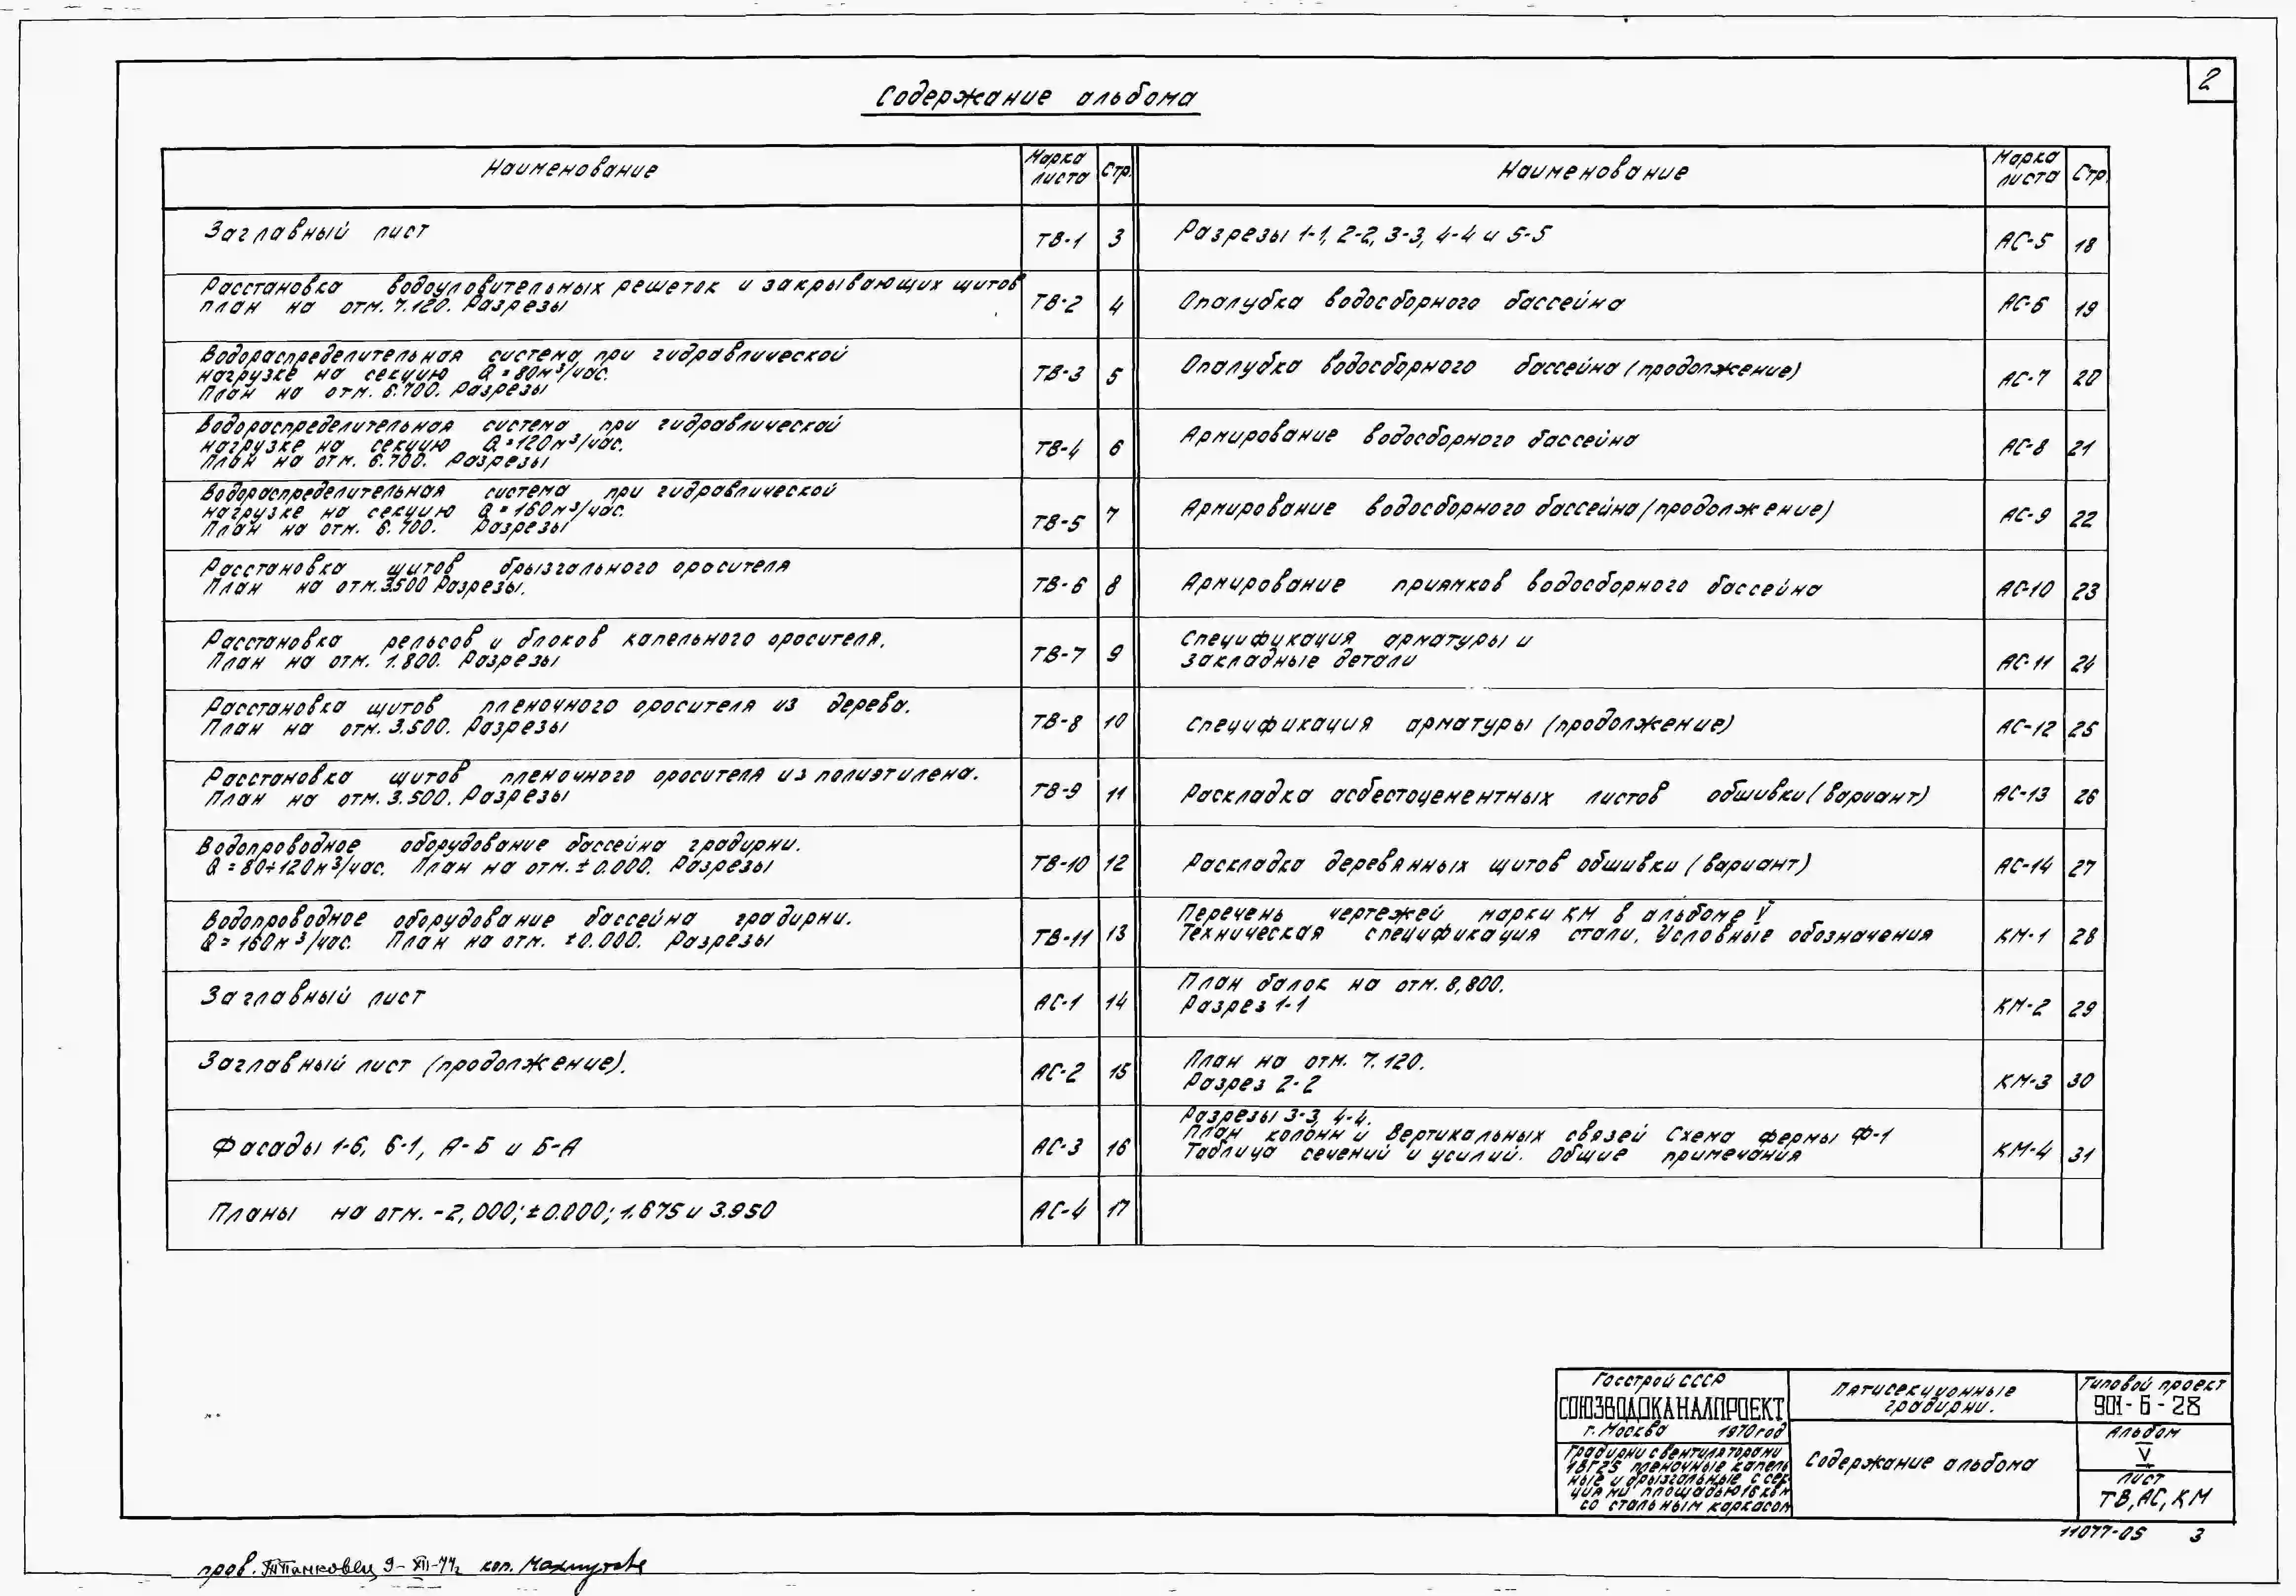 2
Содержание альбома
Наименование
Марка листа
Стр.
Заглавный лист
ТВ-1
3
Расстановка водоуловительных решеток и закрывающих щитов
план на отм. 7.120. Разрезы
ТВ-2
4
Водораспределительная система при гидравлической
нагрузке на секцию Q = 80м³/час.
План на отм. 6.700. Разрезы
ТВ-3
5
Водораспределительная система при гидравлической
нагрузке на секцию Q = 120м³/час.
План на отм. 6.700. Разрезы
ТВ-4
6
Водораспределительная система при гидравлической
нагрузке на секцию Q = 160м³/час.
План на отм. 6.700. Разрезы
ТВ-5
7
Расстановка щитов брызгального оросителя
План на отм. 3.500 Разрезы.
ТВ-6
8
Расстановка рельсов и блоков капельного оросителя.
План на отм. 1.800. Разрезы
ТВ-7
9
Расстановка щитов пленочного оросителя из дерева.
План на отм. 3.500. Разрезы
ТВ-8
10
Расстановка щитов пленочного оросителя из полиэтилена.
План на отм. 3.500. Разрезы
ТВ-9
11
Водопроводное оборудование бассейна градирни.
Q = 80÷120м³/час. План на отм. ± 0.000. Разрезы
ТВ-10
12
Водопроводное оборудование бассейна градирни.
Q = 160м³/час. План на отм. ±0.000. Разрезы
ТВ-11
13
Заглавный лист
АС-1
14
Заглавный лист (продолжение).
АС-2
15
Фасады 1-6, 6-1, А-Б и Б-А
АС-3
16
Планы на отм. -2,000; ±0.000; 1.675 и 3.950
АС-4
17
Наименование
Марка листа
Стр.
Разрезы 1-1, 2-2, 3-3, 4-4 и 5-5
АС-5
18
Опалубка водосборного бассейна
АС-6
19
Опалубка водосборного бассейна (продолжение)
АС-7
20
Армирование водосборного бассейна
АС-8
21
Армирование водосборного бассейна (продолжение)
АС-9
22
Армирование приямков водосборного бассейна
АС-10
23
Спецификация арматуры и
закладные детали
АС-11
24
Спецификация арматуры (продолжение)
АС-12
25
Раскладка асбестоцементных листов обшивки (вариант)
АС-13
26
Раскладка деревянных щитов обшивки (вариант)
АС-14
27
Перечень чертежей марки КМ в альбоме V
Техническая спецификация стали. Условные обозначения
КМ-1
28
План балок на отм. 8,800.
Разрез 1-1
КМ-2
29
План на отм. 7.120.
Разрез 2-2
КМ-3
30
Разрезы 3-3, 4-4.
План колонн и вертикальных связей Схема фермы Ф-1
Таблица сечений и усилий. Общие примечания
КМ-4
31
Госстрой СССР
СОЮЗВОДОКАНАЛПРОЕКТ
г. Москва 1970 год
Градирни с вентиляторами
1ВГ25 пленочные капель
ные и брызгальные с сек
циями площадью 16 кв м
со стальным каркасом
Пятисекционные
градирни.
Содержание альбома
Типовой проект
901-6-28
Альбом
V
Лист
ТВ, АС, КМ
11077-05 3
пров. 9-XII-77г. коп.